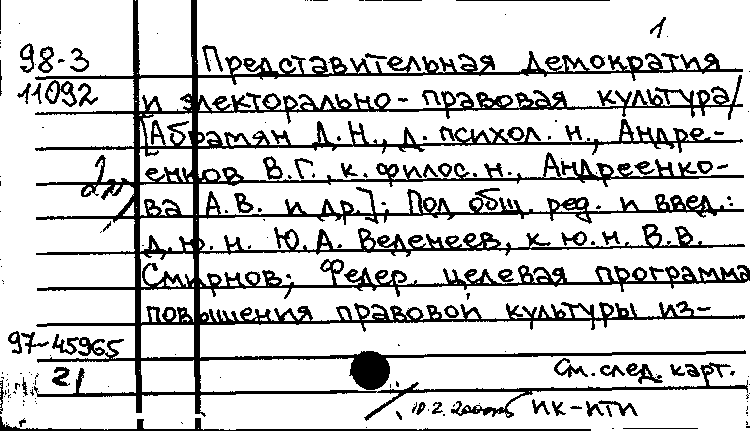 1
98-3 Представительная демократия
11092 и электорально-правовая культура/
[Абрамян Д.Н., д. психол. н., Андре-
енков В.Г., к. филос. н., Андреенко-
ва А.В. и др.]; Под общ. ред. и введ.:
д.ю.н. Ю.А. Веденеев, к.ю.н. В.В.
Смирнов; Федер. целевая программа
повышения правовой культуры из-
97-45965
21 См. след. карт.
ИК-ИТИ